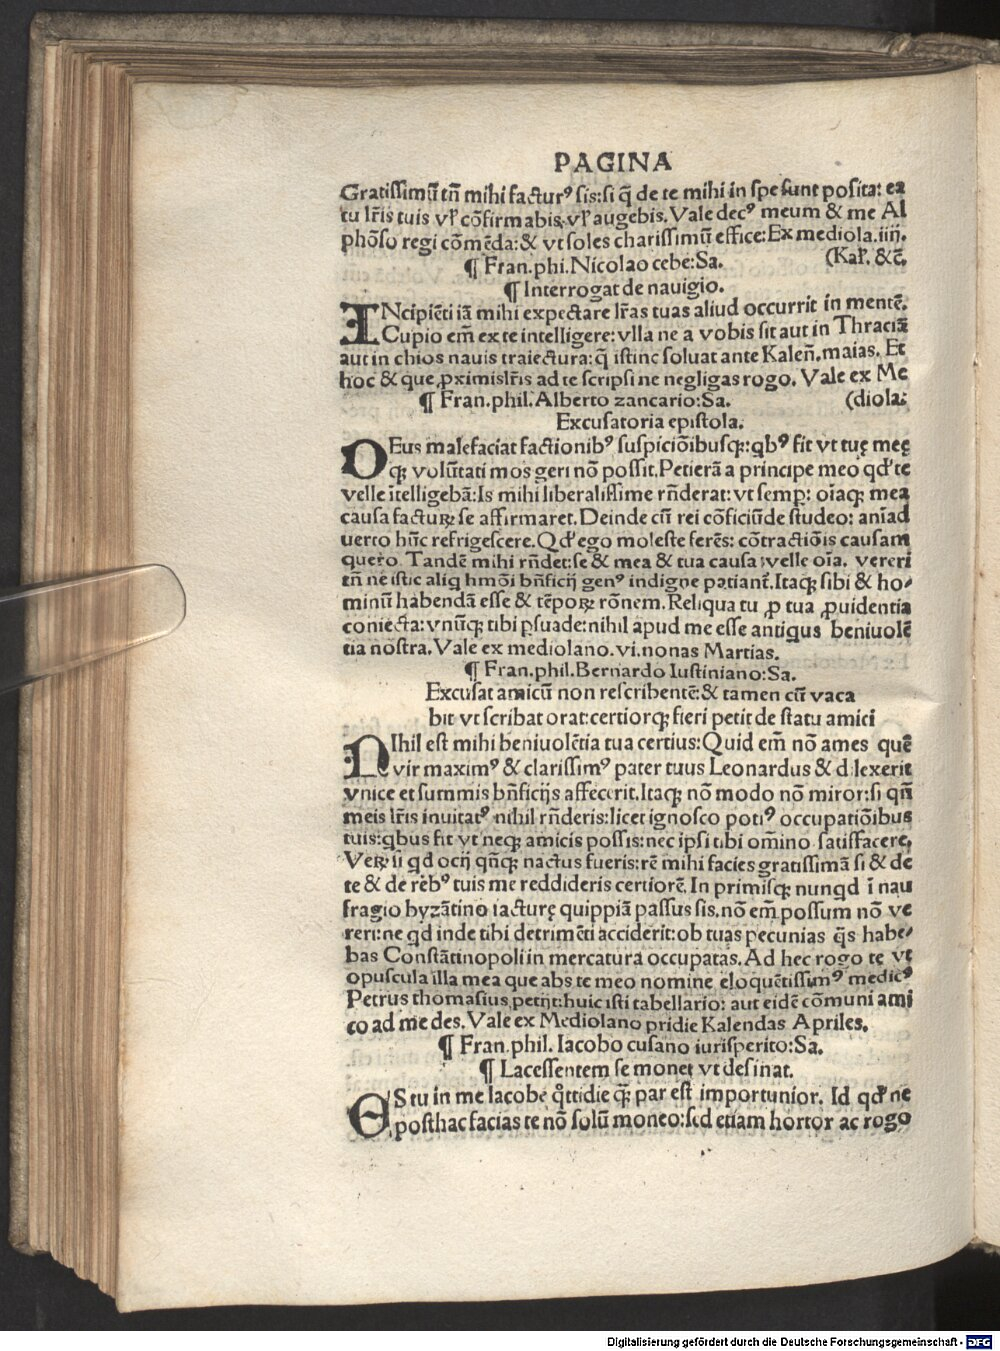 PAGINA
Gratissimū tñ mihi facturꝰ sis: si q̄ de te mihi in spe sunt posita: ea
tu lr̄is tuis vl̓ cōfirmabis, vl̓ augebis. Vale decꝰ meum & me Al
phōso regi cōmēda: & vt soles charissimū effice: Ex mediola. iiij.
(Kal̓. &c̄.
¶ Fran. phi. Nicolao cebe: Sa.
¶ Interrogat de nauigio.
INcipiēti iā mihi expectare lr̄as tuas aliud occurrit in mentē.
Cupio em̄ ex te intelligere: vlla ne a vobis sit aut in Thraciā
aut in chios nauis traiectura: q̄ istinc soluat ante Kalen̄. maias. Et
hoc & que ꝓximis lr̄is ad te scripsi ne negligas rogo. Vale ex Me
(diola:
¶ Fran. phil. Alberto zancario: Sa.
Excusatoria epistola.
DEus malefaciat factionibꝰ suspiciōibusqꝫ: qbꝰ fit vt tuę meę
qꝫ volūtati mos geri nō possit. Petierā a principe meo qd̓ te
velle ītelligebā: Is mihi liberalissime rn̄derat: vt semꝑ: oīaqꝫ mea
causa facturꝫ se affirmaret. Deinde cū rei cōficiūde studeo: aniad
uerto hūc refrigescere. Qd̓ ego moleste ferēs: cōtractiōis causam
quero. Tandē mihi rn̄det: se & mea & tua causa velle oīa. vereri
tn̄ ne istic aliq hmōi bn̄ficij genꝰ indigne patiant̄. Itaqꝫ sibi & ho⸗
minū habendā esse & tēporꝫ rōnem. Reliqua tu ꝓ tua ꝓuidentia
coniecta: vnūqꝫ tibi ꝑsuade: nihil apud me esse antiqus beniuolē
tia nostra. Vale ex mediolano. vi. nonas Martias.
¶ Fran. phil. Bernardo Iustiniano: Sa.
Excusat amicū non rescribentē: & tamen cū vaca
bit vt scribat orat: certiorqꝫ fieri petit de statu amici
NIhil est mihi beniuolētia tua certius: Quid em̄ nō ames quē
vir maximꝰ & clarissimꝰ pater tuus Leonardus & dilexerit
vnice et summis bn̄ficijs affecerit. Itaqꝫ nō modo nō miror: si qn̄
meis lr̄is inuitatꝰ nihil rn̄deris: licet ignosco potiꝰ occupatiōibus
tuis: qbus fit vt neqꝫ amicis possis: nec ipsi tibi om̄ino satisfacere.
Verꝫ ii qd ocij qn̄qꝫ nactus fueris: rē mihi facies gratissimā si & de
te & de rēbꝰ tuis me reddideris certiorē. In primisqꝫ nunqd ī nau
fragio byzātino iacturę quippiā passus sis. nō em̄ possum nō ve
reri: ne qd inde tibi detrimēti acciderit: ob tuas pecunias q̄s habe⸗
bas Constātinopoli in mercatura occupatas. Ad hec rogo te vt
opuscula illa mea que abs te meo nomine eloquētissimꝰ medicꝰ
Petrus thomasius petijt: huic isti tabellario: aut eidē cōmuni ami
co ad me des. Vale ex Mediolano pridie Kalendas Apriles.
¶ Fran. phil. Iacobo cusano iurisperito: Sa.
¶ Lacessentem se monet vt desinat.
ES tu in me Iacobe q̊ttidie qꝫ par est importunior. Id qd̓ ne
posthac facias te nō solū moneo: sed etiam hortor ac rogo
Digitalisierung gefördert durch die Deutsche Forschungsgemeinschaft - DFG